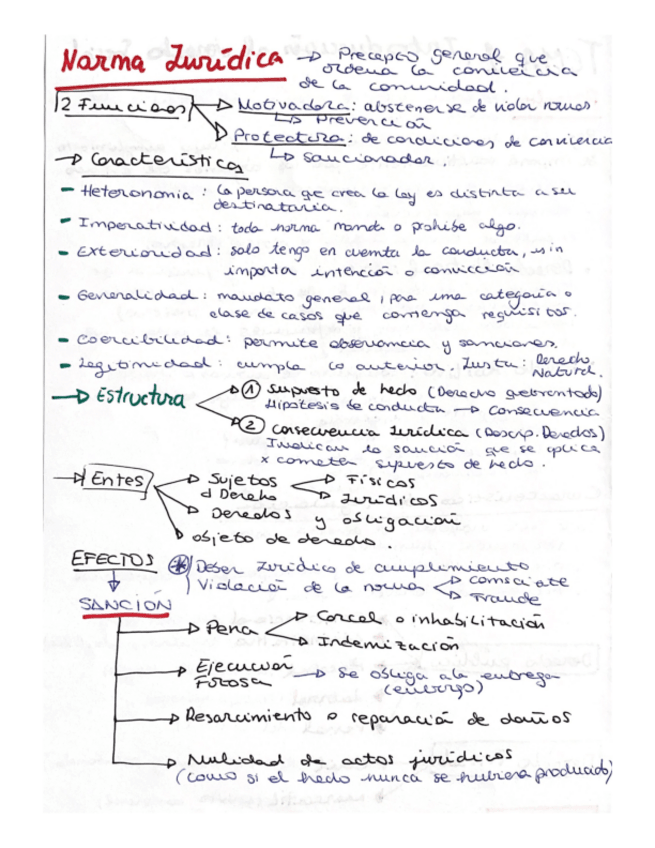 Norma Jurídica → Precepto general que
ordena la convivencia
de la comunidad.
2 Funciones → Motivadora: abstenerse de violar normas
↳ Prevención
→ Protectora: de condiciones de convivencia
↳ Sancionador.
→ Características
- Heteronomía: la persona qe crea la ley es distinta a su
destinataria.
- Imperatividad: toda norma manda o prohibe algo.
- Exterioridad: solo tengo en cuenta la conducta, sin
importar intención o convicción
- Generalidad: mandato general, para una categoría o
clase de casos que comenga requisitos.
- Coercibilidad: permite observancia y sanciones.
- Legitimidad: cumpla lo anterior. Justa: Derecho
Natural.
→ Estructura → ① Supuesto de hecho (Derecho quebrantado)
Hipótesis de conducta → Consecuencia
→ ② Consecuencia Jurídica (Descrip. Derechos)
Indican la sanción que se aplica
x cometer supuesto de hecho.
→ Entes → Sujetos → Físicos
d Derecho → Jurídicos
→ Derechos y obligación
→ objeto de derecho.
EFECTOS * Deber Jurídico de cumplimiento
Violación de la norma → consciente
→ Fraude
SANCIÓN
→ Pena → Carcel o inhabilitación
→ Indemnización
→ Ejecución → se obliga a la entrega
Forosa (embargo)
→ Resarcimiento o reparación de daños
→ Nulidad de actos jurídicos
(como si el hecho nunca se hubiera producido)